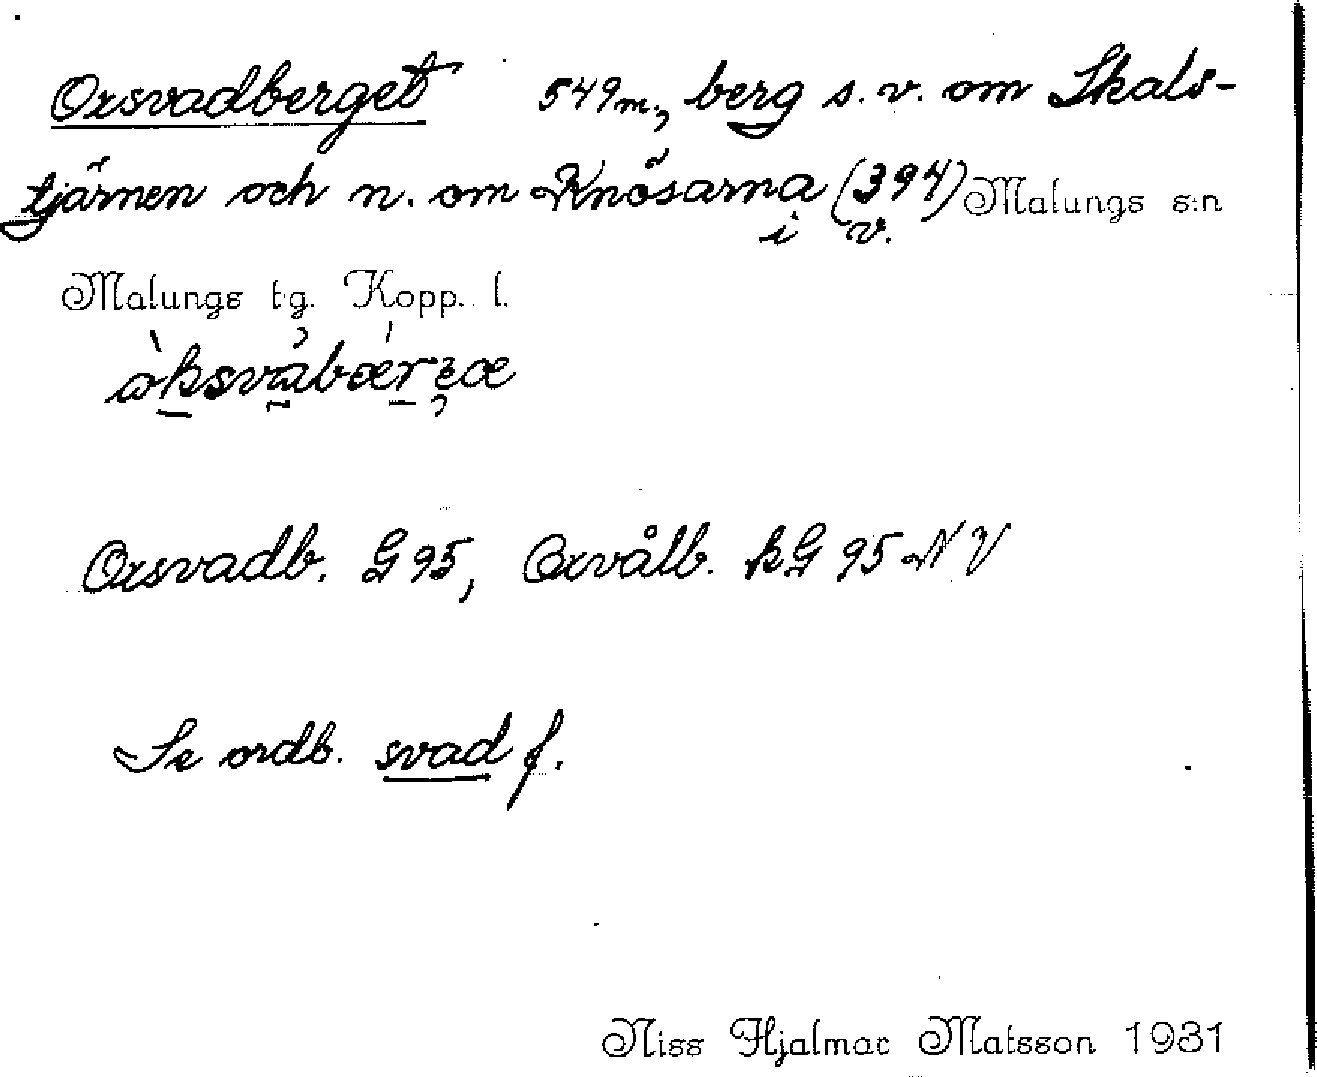 Oxsvadberget 549 m, berg s.v. om Skals-
tjärnen och n. om Knösarna (394) Malungs s:n
i v.
Malungs tg. Kopp. l.
Oxsvadb. G 95, Oxvålb. kG 95 NV
Se ordb. svad f.
Niss Hjalmar Matsson 1931